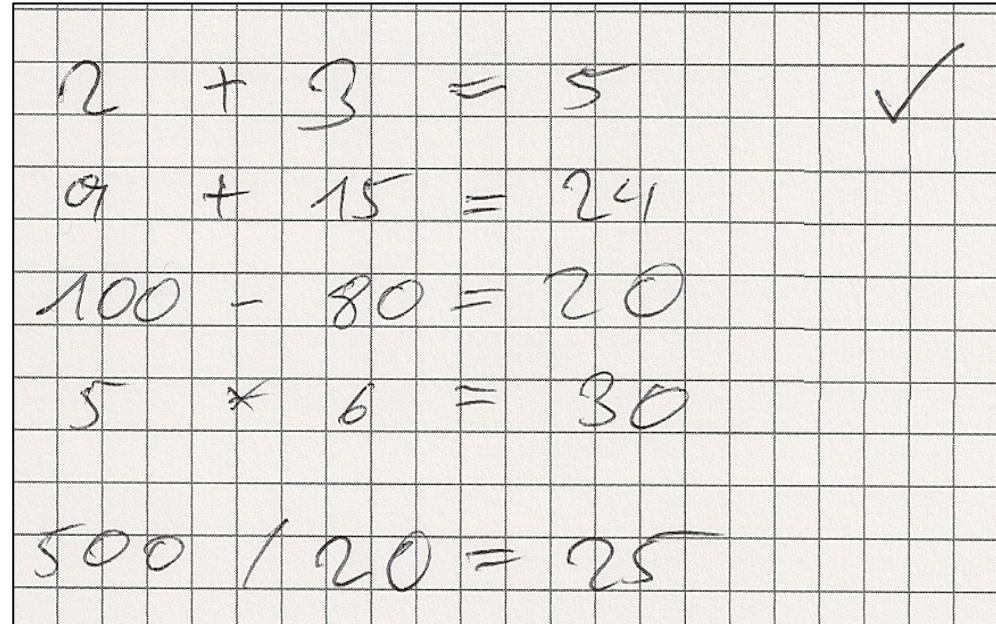 2 + 3 = 5 ✓
9 + 15 = 24
100 - 80 = 20
5 * 6 = 30
500 / 20 = 25